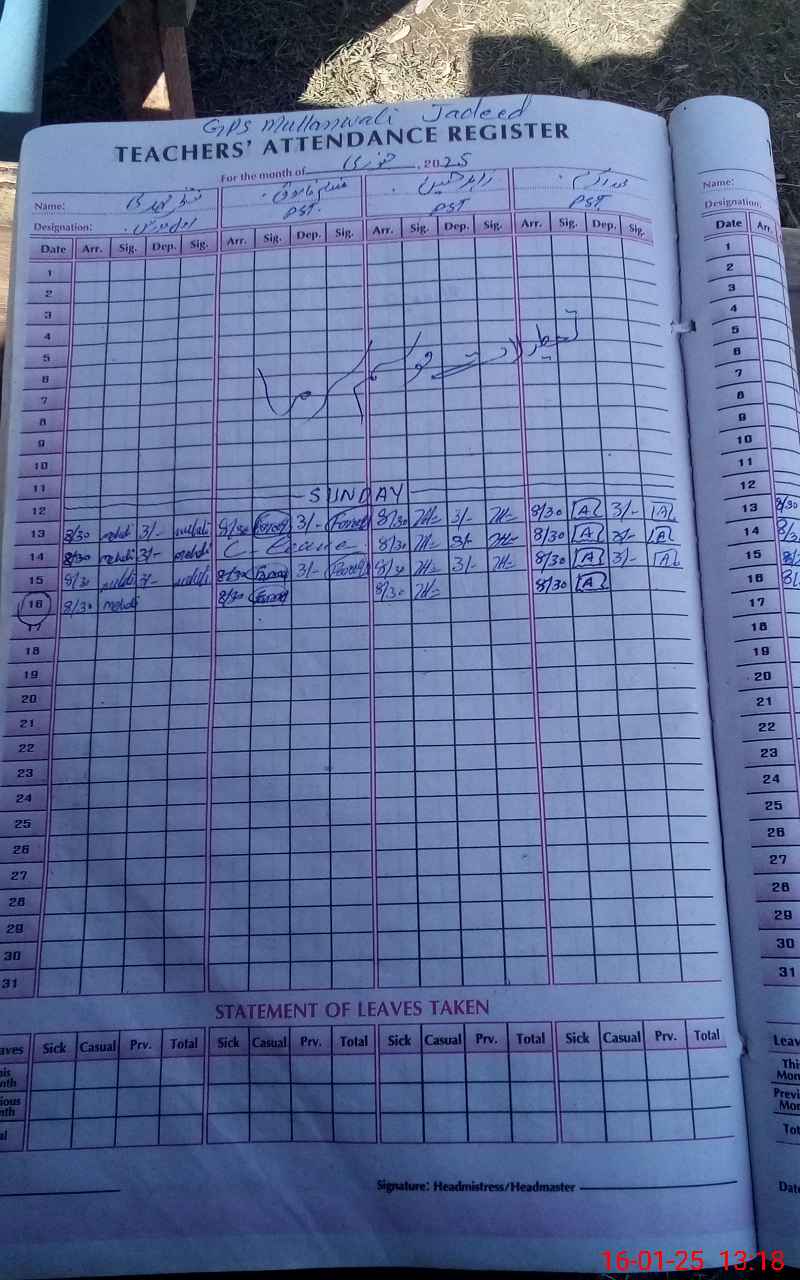 GPS Mullanwali Jadeed
TEACHERS' ATTENDANCE REGISTER
For the month of جنوری, 2025
Name:
Designation: PST. PST PST
Date Arr. Sig. Dep. Sig. Arr. Sig. Dep. Sig. Arr. Sig. Dep. Sig. Arr. Sig. Dep. Sig.
1
2
3
4
5
6
7
8
9
10
11
تعطیلات موسم سرما
12 SUNDAY
13 8/30 mehdi 3/- mehdi 8/30 Farooq 3/- Farooq 8/30 ZH 3/- ZH 8/30 A 3/- A
14 8/30 mehdi 3/- mehdi C-Leave 8/30 ZH 3/- ZH 8/30 A 3/- A
15 8/30 mehdi 3/- mehdi 8/30 Farooq 3/- Farooq 8/30 ZH 3/- ZH 8/30 A 3/- A
16 8/30 mehdi 8/30 Farooq 8/30 ZH 8/30 A
17
18
19
20
21
22
23
24
25
26
27
28
29
30
31
STATEMENT OF LEAVES TAKEN
aves Sick Casual Prv. Total Sick Casual Prv. Total Sick Casual Prv. Total Sick Casual Prv. Total
his
nth
ious
nth
al
Signature: Headmistress/Headmaster
Name:
Designation:
Date Arr.
1
2
3
4
5
6
7
8
9
10
11
12
13 8/30
14 8/3
15
16
17
18
19
20
21
22
23
24
25
26
27
28
29
30
31
Leav
Thi
Mon
Previ
Mor
Tot
Date
16-01-25 13:18